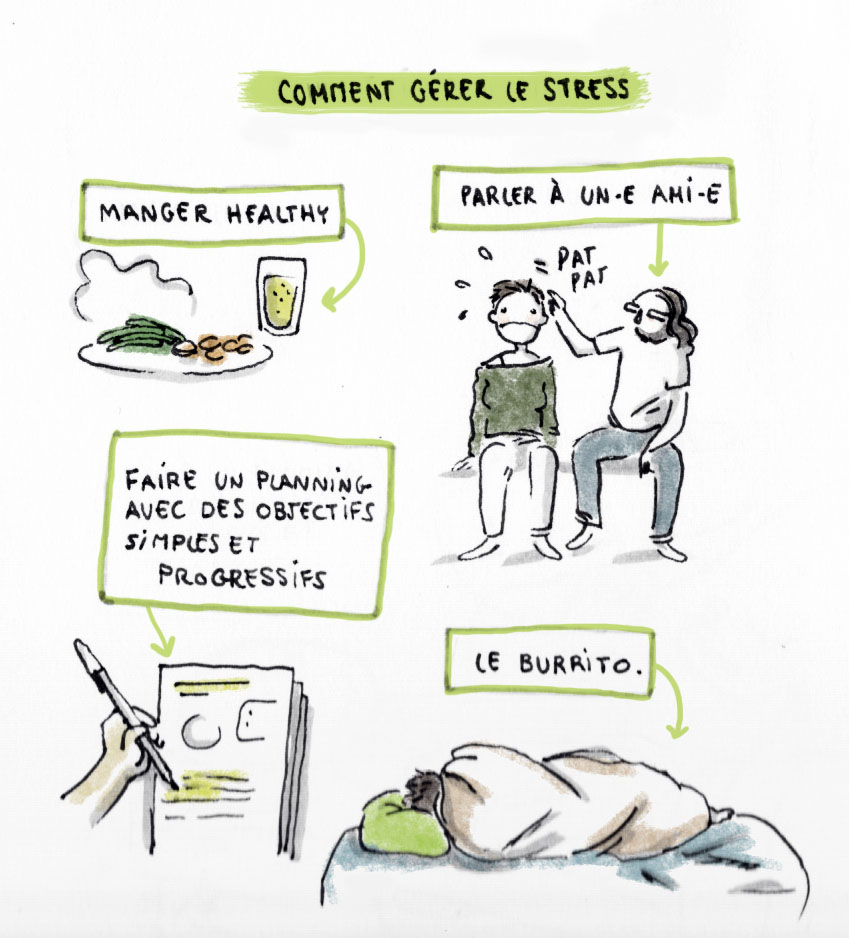 COMMENT GÉRER LE STRESS
MANGER HEALTHY
PARLER À UN·E AMI-E
PAT
PAT
FAIRE UN PLANNING
AVEC DES OBJECTIFS
SIMPLES ET
PROGRESSIFS
LE BURRITO.